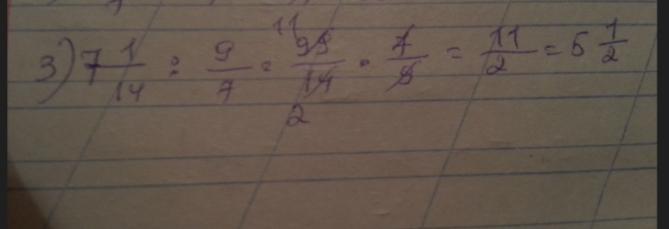 3) 7 1/14 : 9/7 = 99/14 · 7/9 = 11/2 = 5 1/2
11
2